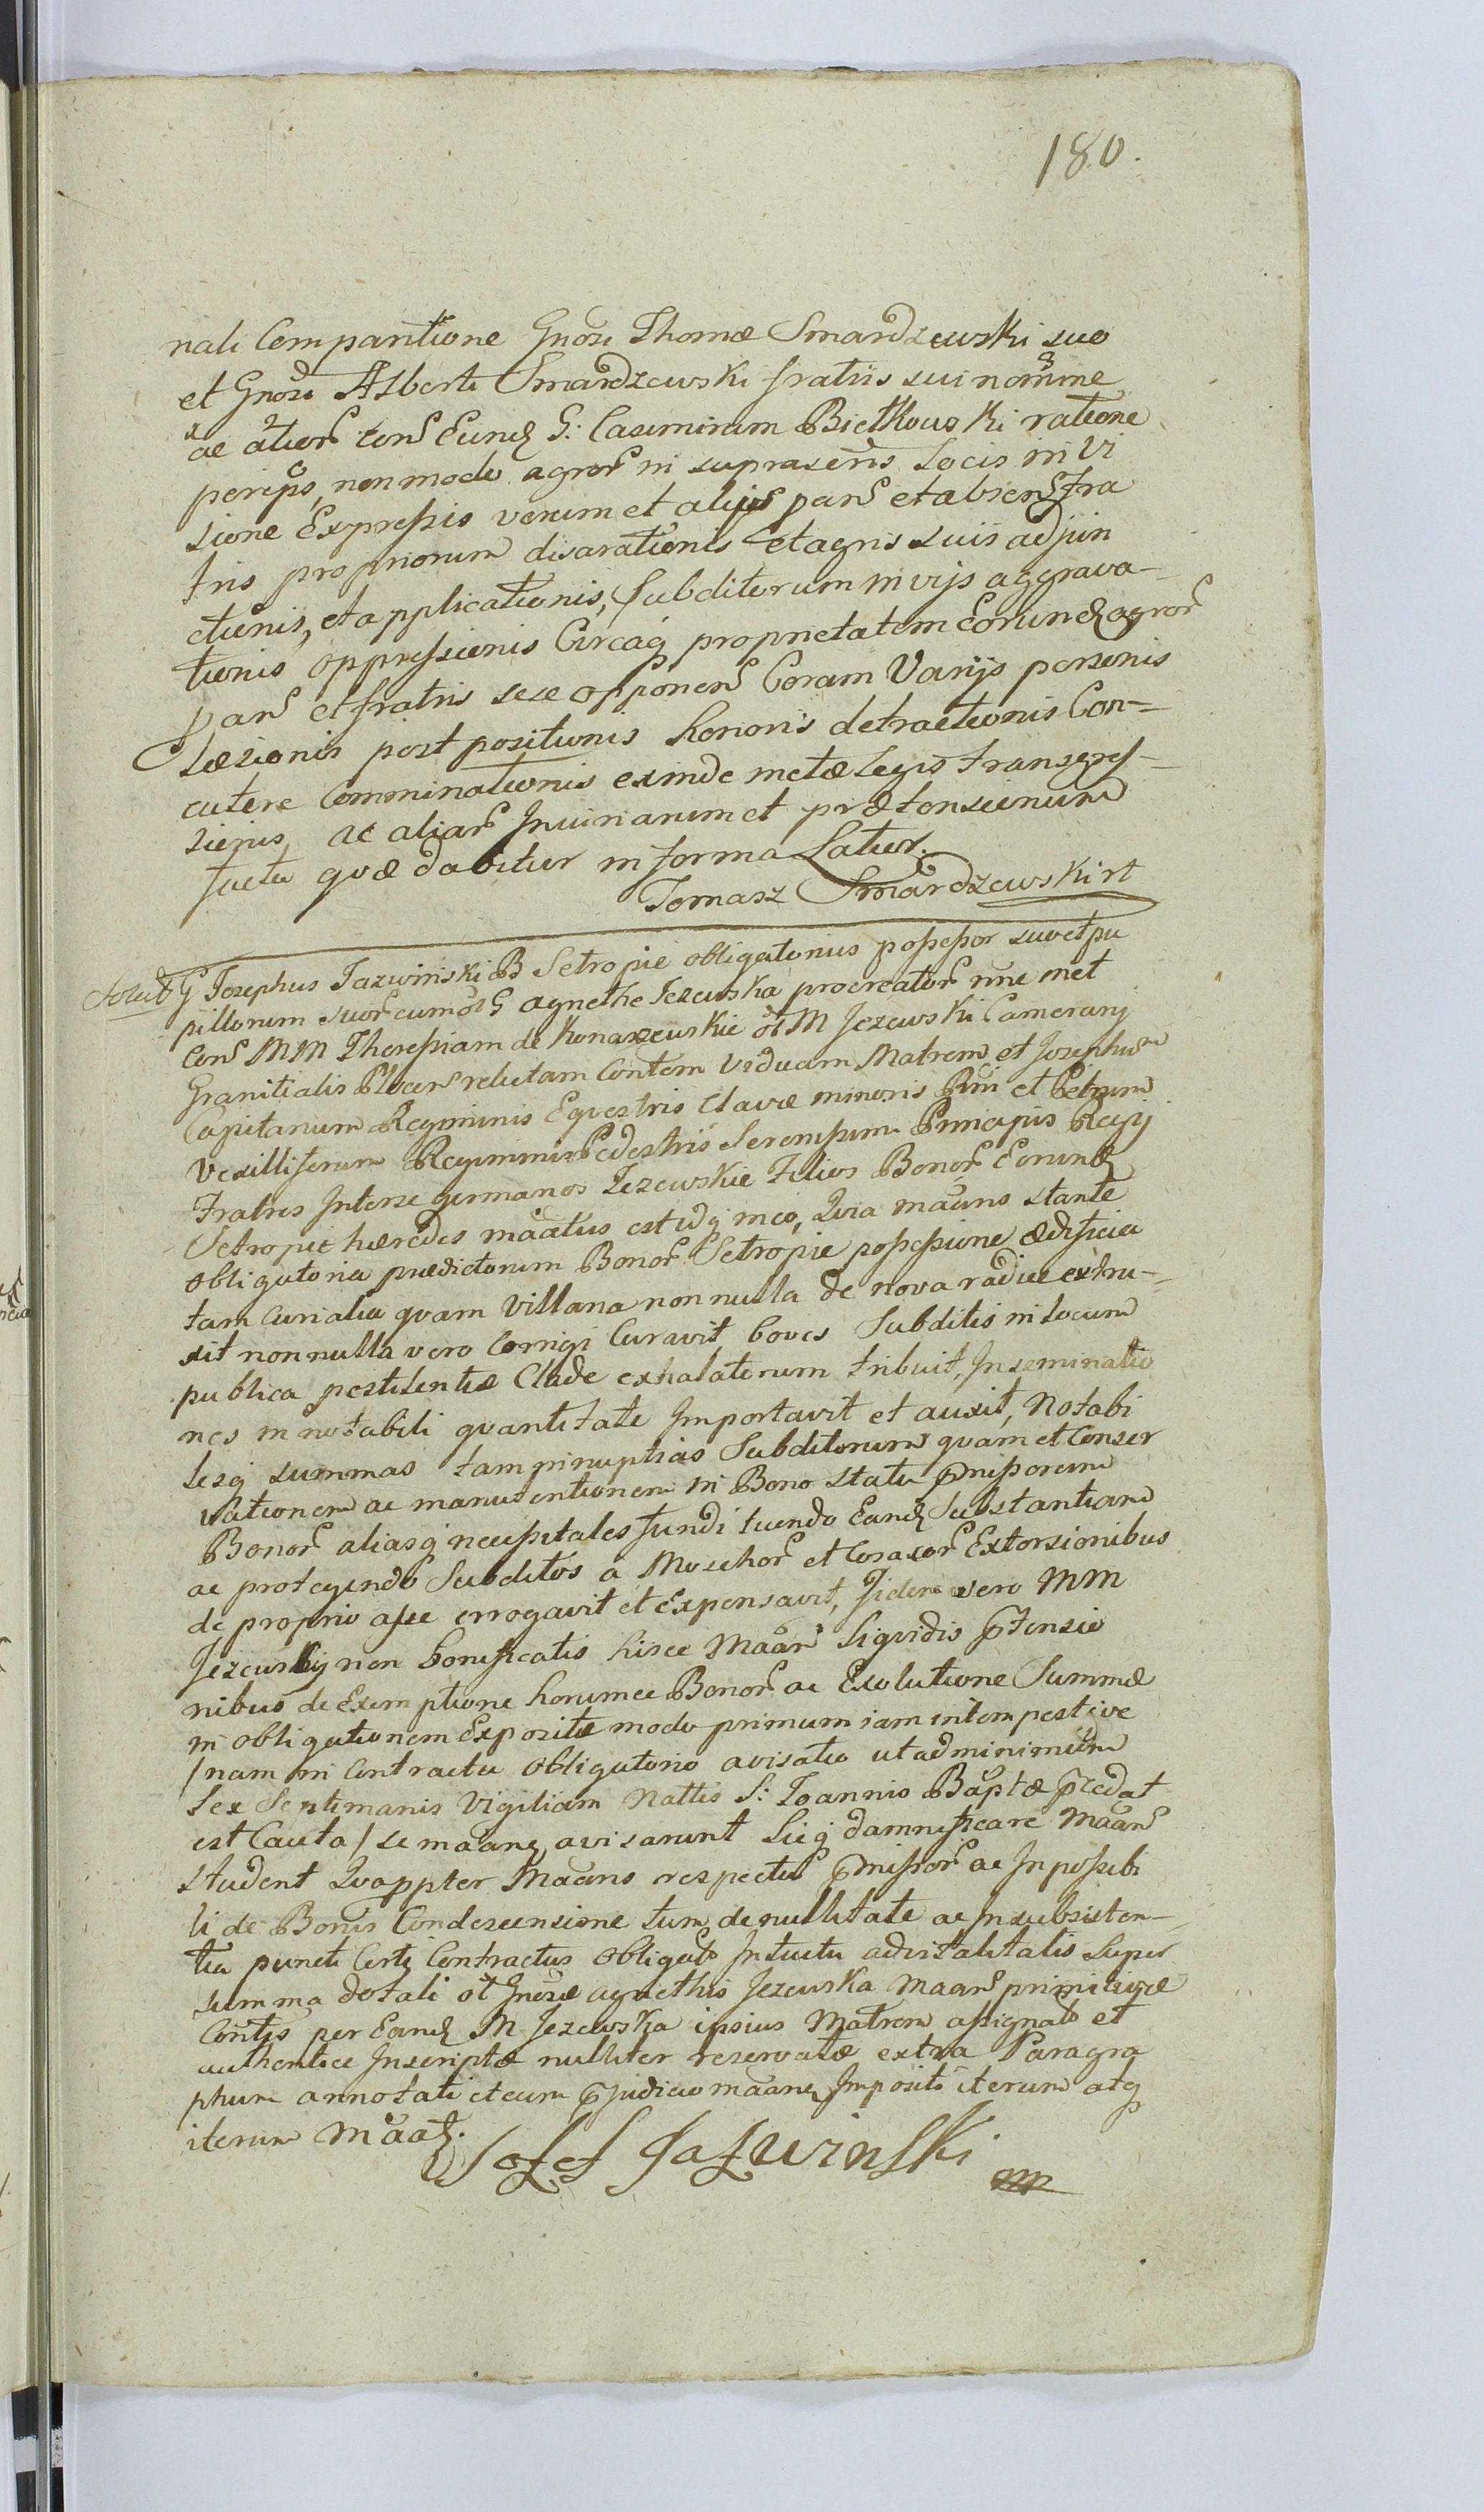 180.
nali Comparitione Gnosi Thomæ Smardzewski suo
et Gnosi Alberti Smardzewski fratris sui nomine
ac ātior cons Eund G: Casimirum Bietkowski ratione
perceptis, non modo agror in suprascris Locis in Vi
sione Expressis verum et alijs pars et absens fra
tris propriorum disarationis et agris suis adjun
ctionis, et applicationis, Subditorum in vijs aggrava-
tionis oppressionis Circaq proprietatem Eorund agror
pars et fratris sese opponens Coram Varijs personis
Læsionis postpositionis honoris detractionis Con-
cutere Comminationis exinde metæ Legis transgres-
sionis ac aliar Iniuriarum et prætensionum
juctu qvæ dabitur in forma Latior.
Tomasz Smardzewski rt
Solut G Josephus Jazwinski B Setropie obligatorius possessor suo et pu
pillorum suor cum ol G agnethe Jezewska procreator nne met
cons MM Theressiam de Konarzewskie ol M Jezewski Camerarij
Granitialis Plocens relictam Contem Viduam Matrem et Josephum
Capitanum Regiminis Eqvestris Clavæ minoris Rni et Petrum
Vexilliferum Regiminis Pedestris Serenissimi Principis Regij
Fratres Interse germanos Jezewskie Filios Bonor Eorund
Setropie hæredes maatus est idq ineo, Qvia maans stante
obligatoria prædictorum Bonor Setropie possessione ædificia
tam Curialia qvam Villana nonnulla de nova radice extru-
xit nonnulla vero Corrigi Curavit, boves Subditis in locum
publica pestilentiæ Clade exhalatorum tribuit, Inseminatio
nes in notabili qvantitate Importavit et auxit, Notabi
lesq summas tam pinuptias Subditorum qvam et Conser
vationem ac manutentionem in Bono statu pmissorum
Bonor aliasq necessitates fundi tuendo Eand Substantiam
ac protegendo Subditos a Moschor et Cosacor Extorsionibus
de proprio asse errogavit et Expensavit, Jidem vero MM
Jezewskij non bonificatis hisce Maan Liqvidis ptensio
nibus de Exemptione horumce Bonor ac Exolutione Summæ
in obligationem Expositæ modo primum iam intempestive
/nam in Contractu Obligatorio avisatio ut ad minimum
Sex Septimanis Vigiliam Nattis S: Joannis Baptæ præcedat
est Cauta/ se maanq avisarunt Sicq damnificare Maans
student Qvappter Maans respectu pmissor ac Inpossibi
li de Bonis Condescensione tum de nullitate ac Insubsisten-
tia puncti Certi Contractus obligato Intuitu advitalitatis Super
summa dotali ol Gnosæ agnethis Jezewska Maans primituræ
Contis per Eand M Jezewska ipsius Matrem assignato et
authentice Inscriptæ nulliter reservatæ extra Paragra
phum annotati et cum pjudicio maanq Impositi iterum atq
iterum Maat.
Jozef Jazwinski
mp